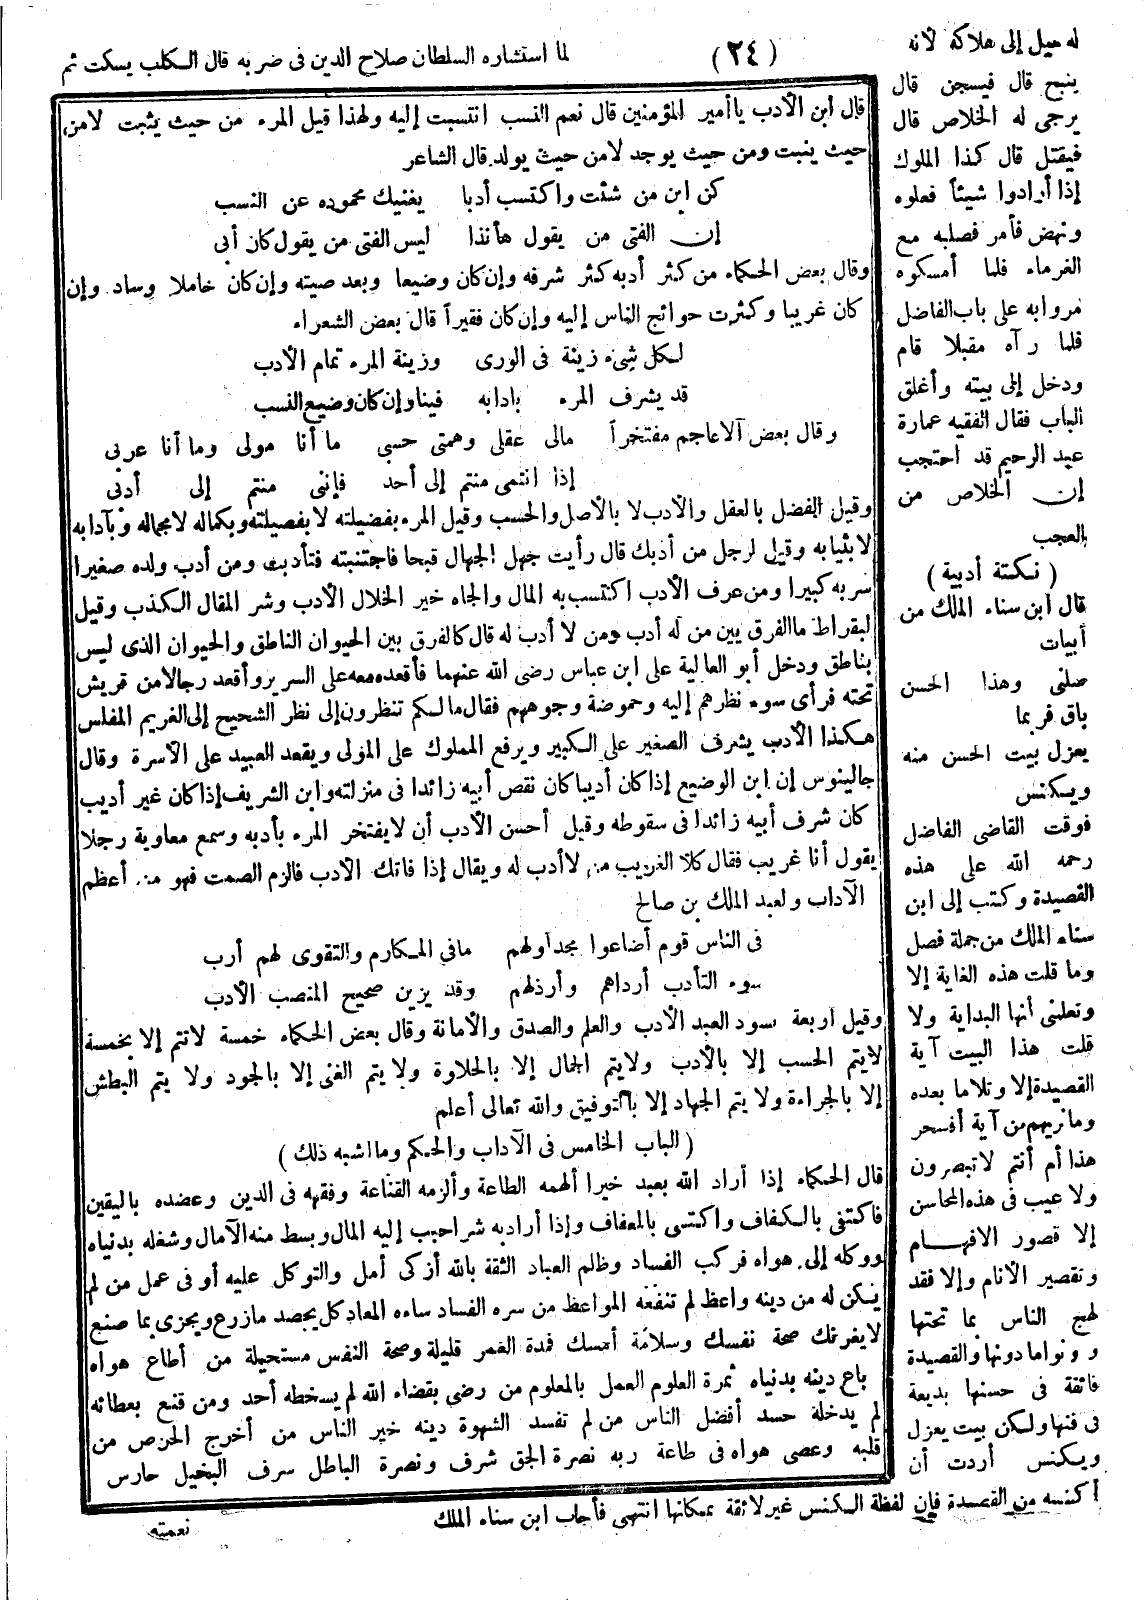 (٢٤)
لما استشاره السلطان صلاح الدين فى ضربه قال الكلب يسكت ثم
له ميل إلى هلاكه لأنه
ينبح قال فيسجن قال
يرجى له الخلاص قال
فيقتل قال كذا الملوك
إذا أرادوا شيئاً فعلوه
ونهض فأمر فصلبه مع
الغرماء فلما أمسكوه
مروا به على باب الفاضل
فلما رآه مقبلا قام
ودخل إلى بيته وأغلق
الباب فقال الفقيه عمارة
عبد الرحيم قد احتجب
إن الخلاص من
العجب
(نكتة أدبية)
قال ابن سناء الملك من
أبيات
صلنى وهذا الحسن
باق فربما
يعزل بيت الحسن منه
ويكنس
فوقت القاضى الفاضل
رحمه الله على هذه
القصيدة وكتب إلى ابن
سناء الملك من جملة فصل
وما قلت هذه الغاية إلا
وتعلنى أنها البداية ولا
قلت هذا البيت آية
القصيدة إلا وتلاما بعده
وما نريهم من آية أفسحر
هذا أم أنتم لا تبصرون
ولا عيب فى هذه المحاسن
إلا قصور الافهام
وتقصير الأنام وإلا فقد
لهج الناس بما تحتها
ودونوا ما دونها والقصيدة
فائقة فى حسنها بديعة
فى فنها ولكن بيت يعزل
ويكنس أردت أن
أكنسه من القصيدة فإن لفظة الكنس غير لائقة بمكانها انتهى فأجاب ابن سناء الملك
قال ابن الأدب يا أمير المؤمنين قال نعم النسب انتسبت إليه ولهذا قيل المرء من حيث يثبت لا من
حيث ينبت ومن حيث يوجد لا من حيث يولد قال الشاعر
كن ابن من شئت واكتسب أدبا يغنيك محموده عن النسب
إن الفتى من يقول هأنذا ليس الفتى من يقول كان أبى
وقال بعض الحكماء من كثر أدبه كثر شرفه وإن كان وضيعا وبعد صيته وإن كان خاملا وساد وإن
كان غريبا وكثرت حوائج الناس إليه وإن كان فقيراً قال بعض الشعراء
لكل شيء زينة فى الورى وزينة المرء تمام الأدب
قد يشرف المرء بآدابه فينا وإن كان وضيع النسب
وقال بعض الاعاجم مفتخراً مالى عقلى وهمتى حسبى ما أنا مولى وما أنا عربى
إذا انتمى منتم إلى أحد فإننى منتم إلى أدبى
وقيل الفضل بالعقل والأدب لا بالأصل والحسب وقيل المرء بفضيلته لا بفصيلته وبكماله لا بجماله وبآدابه
لا بثيابه وقيل لرجل من أدبك قال رأيت جهل الجهال قبحا فاجتنبته فتأدبت ومن أدب ولده صغيرا
سر به كبيرا ومن عرف الأدب اكتسب به المال والجاه خير الخلال الأدب وشر المقال الكذب وقيل
لبقراط ما الفرق بين من له أدب ومن لا أدب له قال كالفرق بين الحيوان الناطق والحيوان الذى ليس
بناطق ودخل أبو العالية على ابن عباس رضى الله عنهما فأقعده معه على السرير وأقعد رجالا من قريش
تحته فرأى سوء نظرهم إليه وحموضة وجوههم فقال مالكم تنظرون إلى نظر الشحيح إلى الغريم المفلس
هكذا الأدب يشرف الصغير على الكبير ويرفع المملوك على المولى ويقعد العبيد على الأسرة وقال
جالينوس إن ابن الوضيع إذا كان أديبا كان نقص أبيه زائدا فى منزلته وابن الشريف إذا كان غير أديب
كان شرف أبيه زائدا فى سقوطه وقيل أحسن الأدب أن لا يفتخر المرء بأدبه وسمع معاوية رجلا
يقول أنا غريب فقال كلا الغريب من لا أدب له ويقال إذا فاتك الأدب فالزم الصمت فهو من أعظم
الآداب ولعبد الملك بن صالح
فى الناس قوم أضاعوا مجد أولهم مافى المكارم والتقوى لهم أرب
سوء التأدب أرداهم وأرذلهم وقد يزين صحيح المنصب الأدب
وقيل أربعة تسود العبد الأدب والعلم والصدق والأمانة وقال بعض الحكماء خمسة لا تتم إلا بخمسة
لا يتم الحسب إلا بالأدب ولا يتم الجمال إلا بالحلاوة ولا يتم الغنى إلا بالجود ولا يتم البطش
إلا بالجراءة ولا يتم الجهاد إلا بالتوفيق والله تعالى أعلم
(الباب الخامس فى الآداب والحكم وما اشبه ذلك)
قال الحكماء إذا أراد الله بعبد خيرا ألهمه الطاعة وألزمه القناعة وفقهه فى الدين وعضده باليقين
فاكتفى بالكفاف واكتسى بالعفاف وإذا أراد به شرا حبب إليه المال وبسط منه الآمال وشغله بدنياه
ووكله إلى هواه فركب الفساد وظلم العباد الثقة بالله أزكى أمل والتوكل عليه أوفى عمل من لم
يكن له من دينه واعظ لم تنفعه المواعظ من سره الفساد ساءه المعاد كل يحصد ما زرع ويجزى بما صنع
لا يغرنك صحة نفسك وسلامة أمسك فمدة العمر قليلة وصحة النفس مستحيلة من أطاع هواه
باع دينه بدنياه ثمرة العلوم العمل بالمعلوم من رضي بقضاء الله لم يسخطه أحد ومن قنع بعطائه
لم يدخله حسد أفضل الناس من لم تفسد الشهوة دينه خير الناس من أخرج الحرص من
قلبه وعصى هواه فى طاعة ربه نصرة الحق شرف ونصرة الباطل سرف البخيل حارس
نعمته